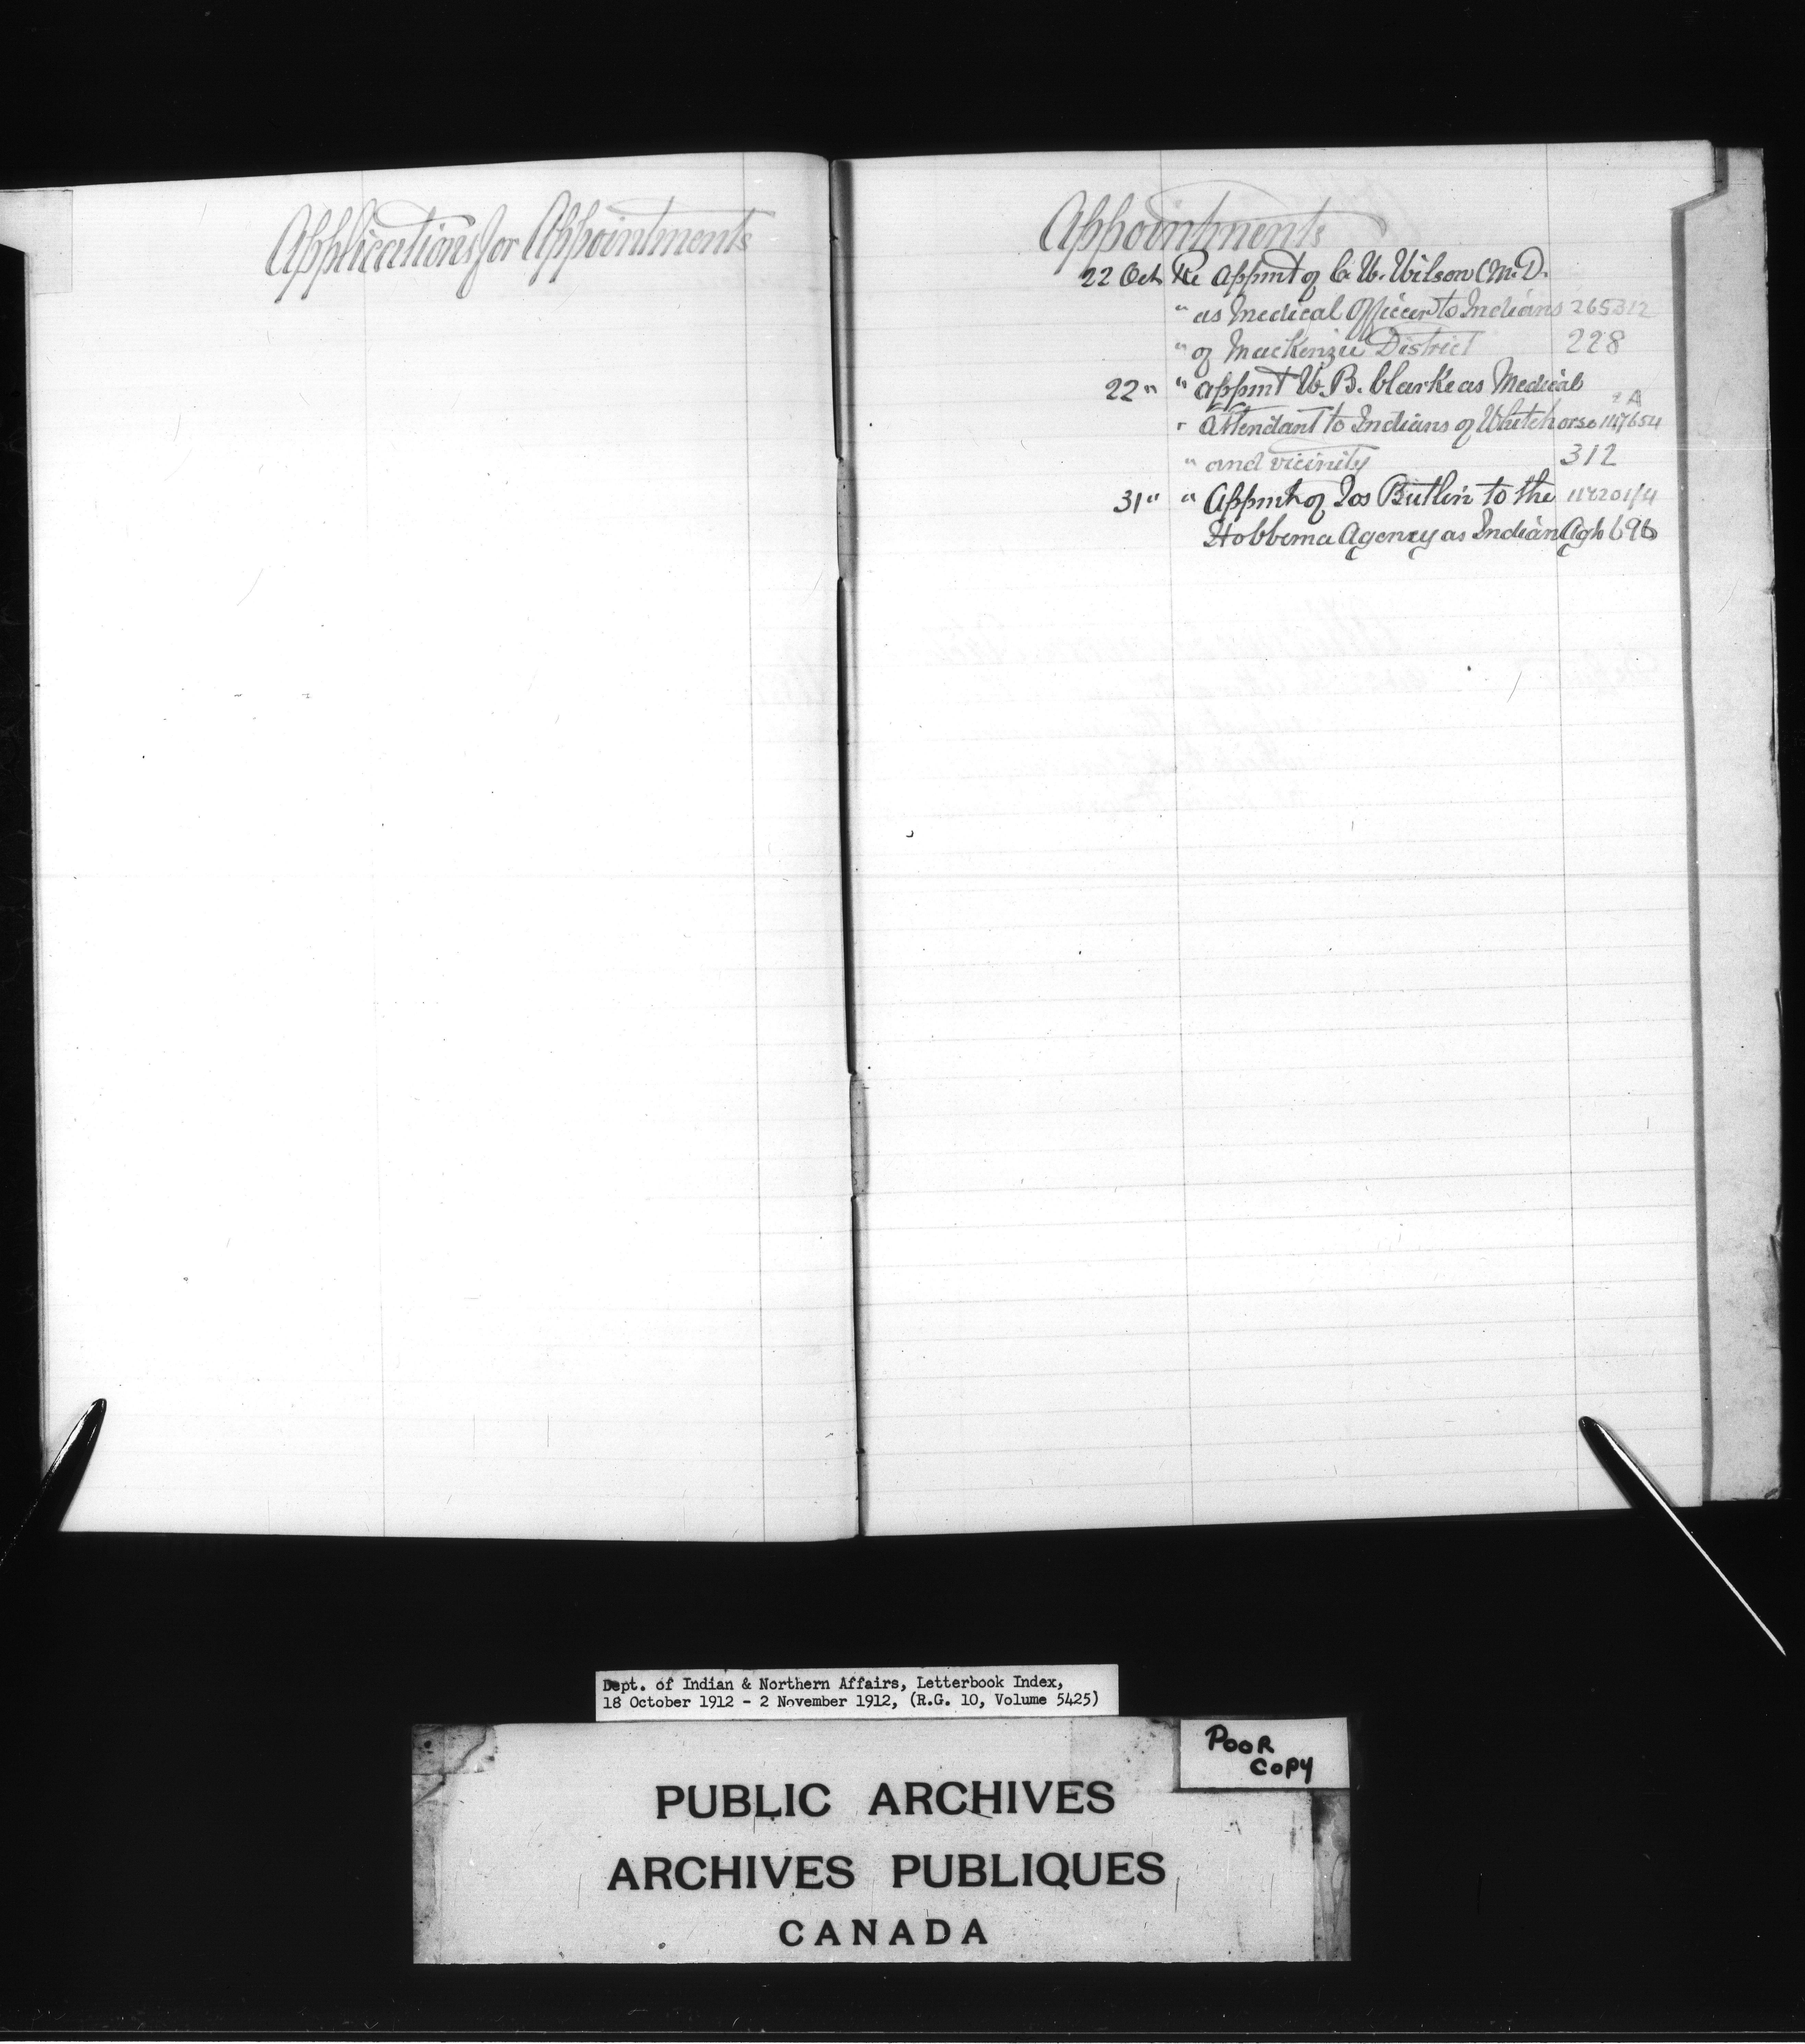 Applications for Appointments
Appointments
22 Oct Re Appmt of C. W. Wilson (M.D.
" as Medical Officer to Indians 265312
" of Mackenzie District 228
22 " " appmt W. B. Clarke as Medical
" Attendant to Indians of Whitehorse 147654
" and vicinity 312
31 " " Appmt of Jos Butlin to the
Hobbema Agency as Indian Agt 696
Dept. of Indian & Northern Affairs, Letterbook Index,
18 October 1912 - 2 November 1912, (R.G. 10, Volume 5425)
POOR
COPY
PUBLIC ARCHIVES
ARCHIVES PUBLIQUES
CANADA